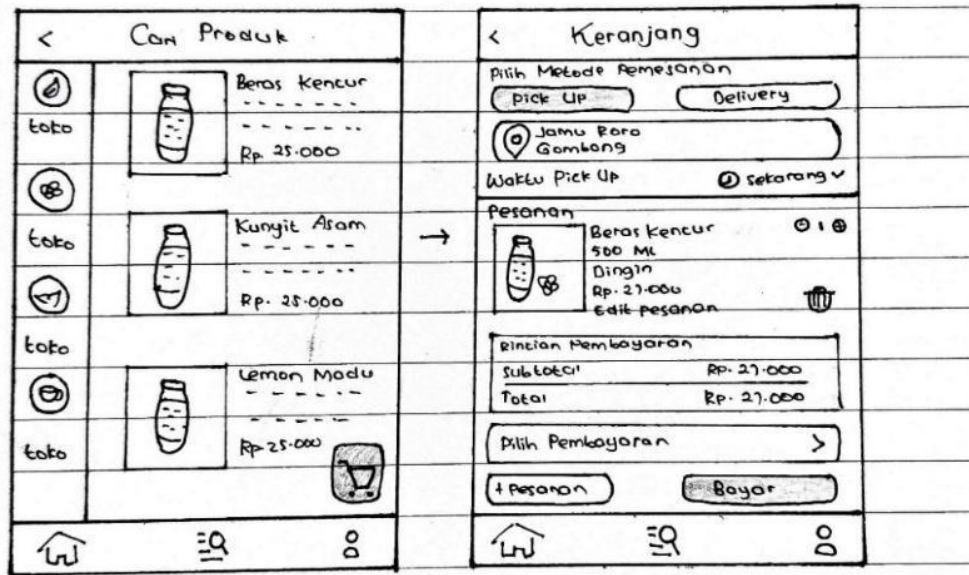 < Cari Produk
toko
toko
toko
toko
Beras Kencur
Rp. 25.000
Kunyit Asam
Rp. 25.000
Lemon Madu
Rp 25.000
< Keranjang
Pilih Metode Pemesanan
Pick Up
Delivery
Jamu Roro
Gombong
Waktu Pick Up
Sekarang
Pesanan
Beras Kencur
1
500 ML
Dingin
Rp. 27.000
Edit pesanan
Rincian Pembayaran
Subtotal Rp. 27.000
Total Rp. 27.000
Pilih Pembayaran >
+ Pesanan
Bayar